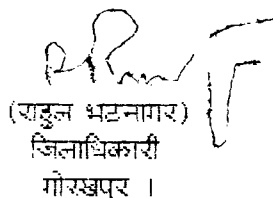 (राहुल भटनागर)
जिलाधिकारी
गोरखपुर ।